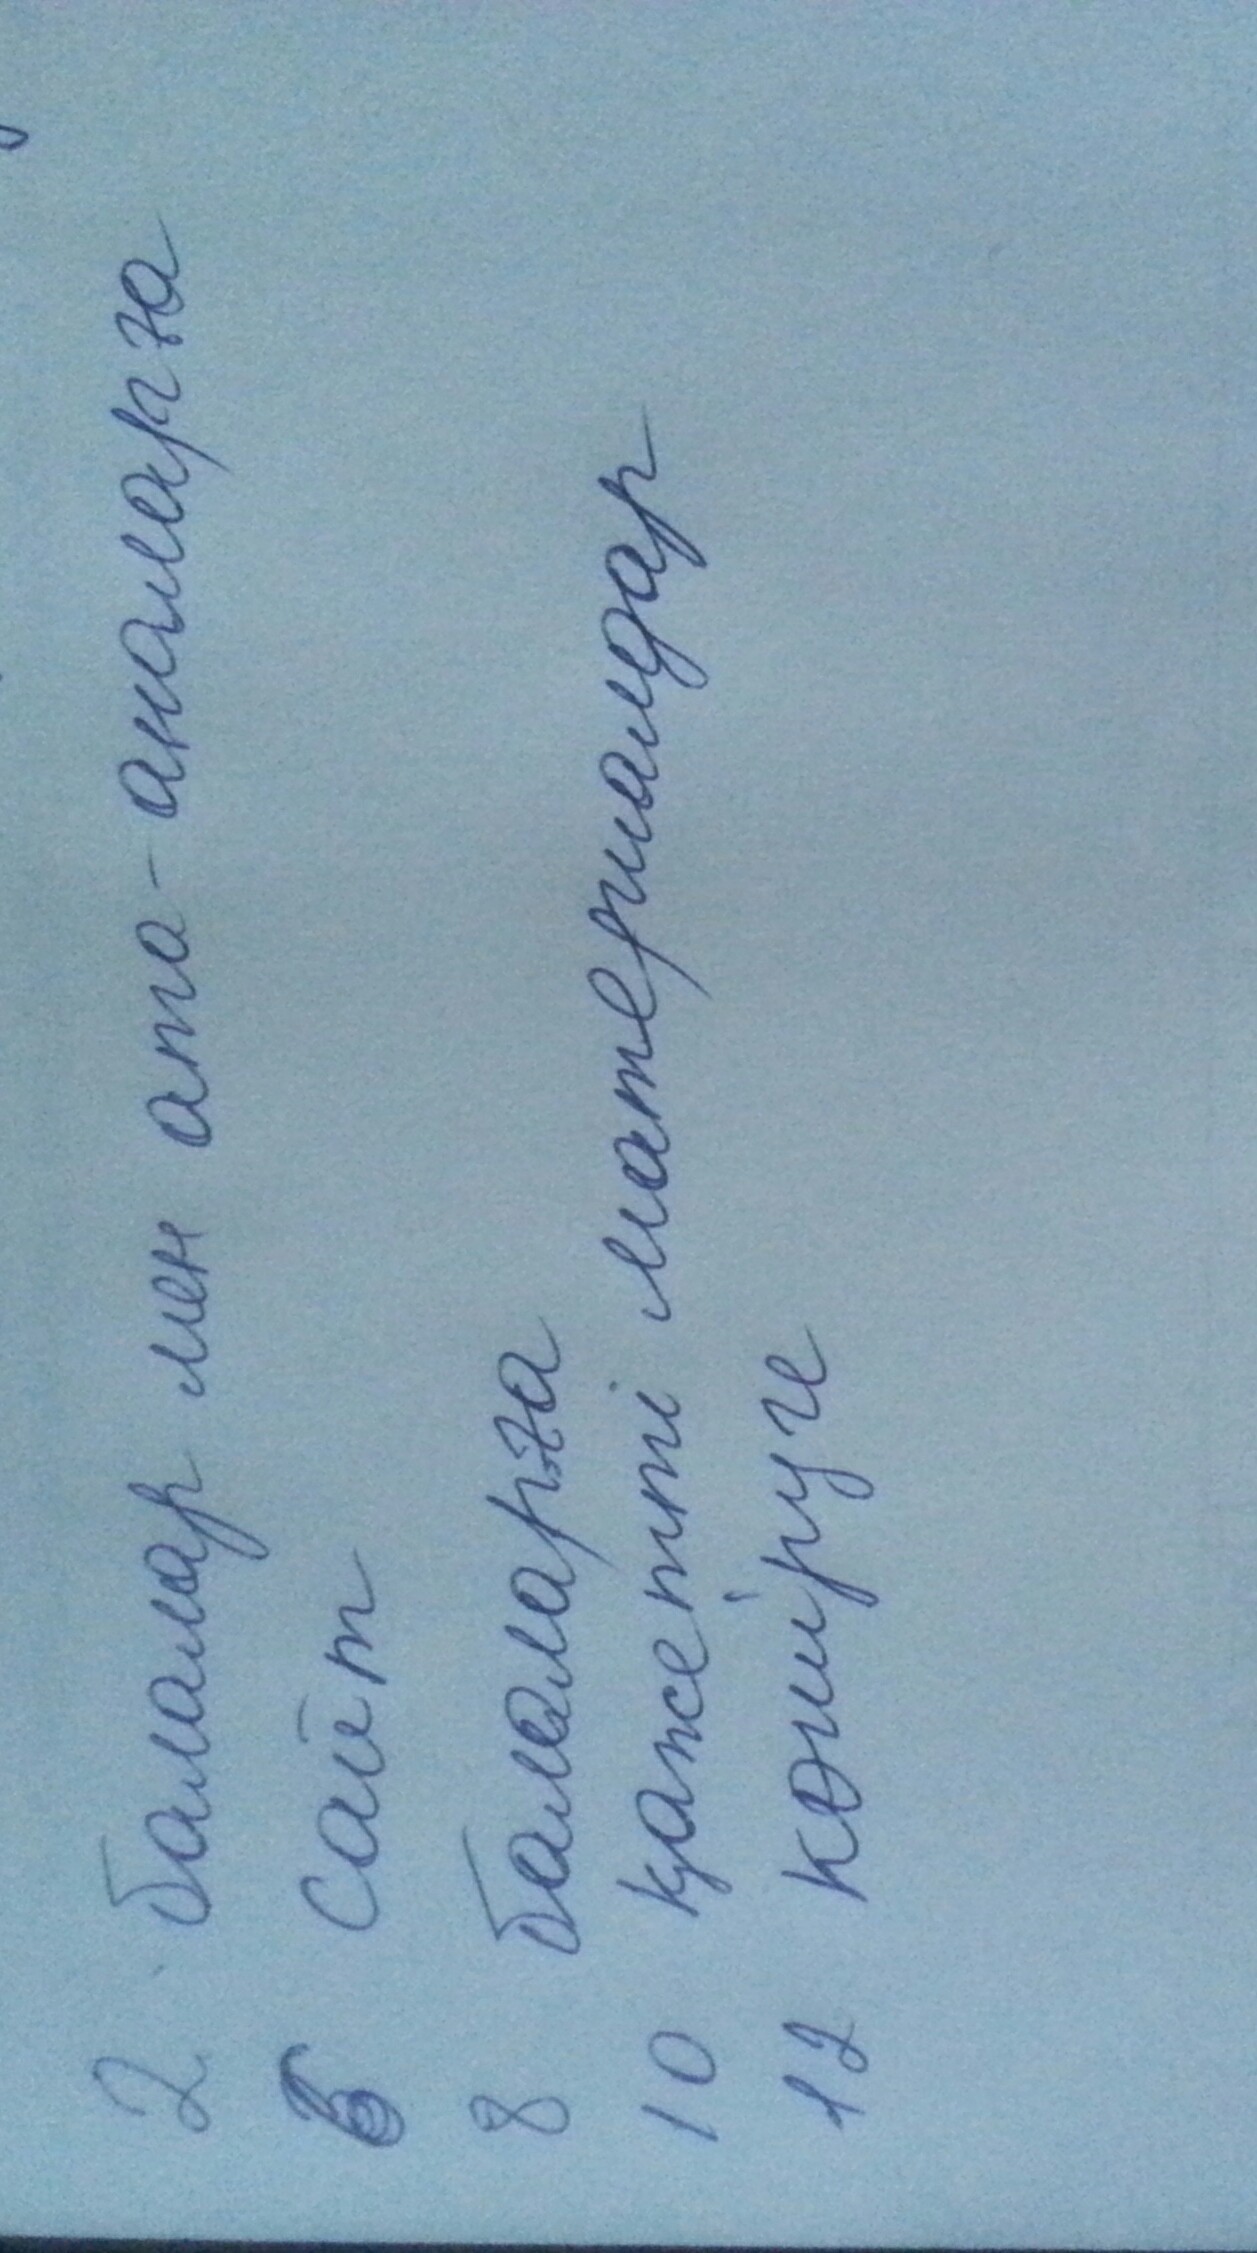 2. балалар мен ата-аналарға
6 сайт
8 балаларға
10 қажетті материалдар
12 көшіруге